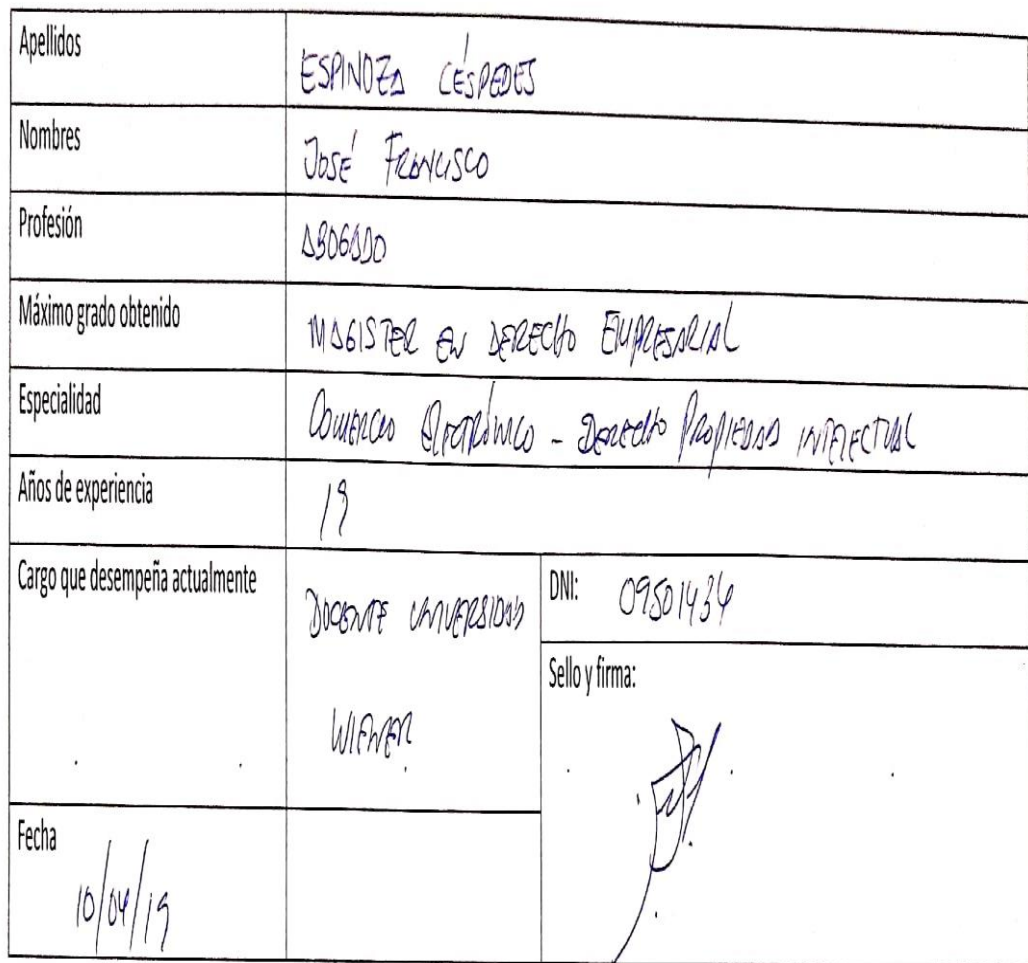 Apellidos ESPINOZA CÉSPEDES
Nombres JOSÉ FRANCISCO
Profesión ABOGADO
Máximo grado obtenido MAGISTER EN DERECHO EMPRESARIAL
Especialidad COMERCIO ELECTRÓNICO - DERECHO PROPIEDAD INTELECTUAL
Años de experiencia 19
Cargo que desempeña actualmente DOCENTE UNIVERSIDAD
WIENER
DNI: 09501434
Sello y firma:
Fecha
10/04/19